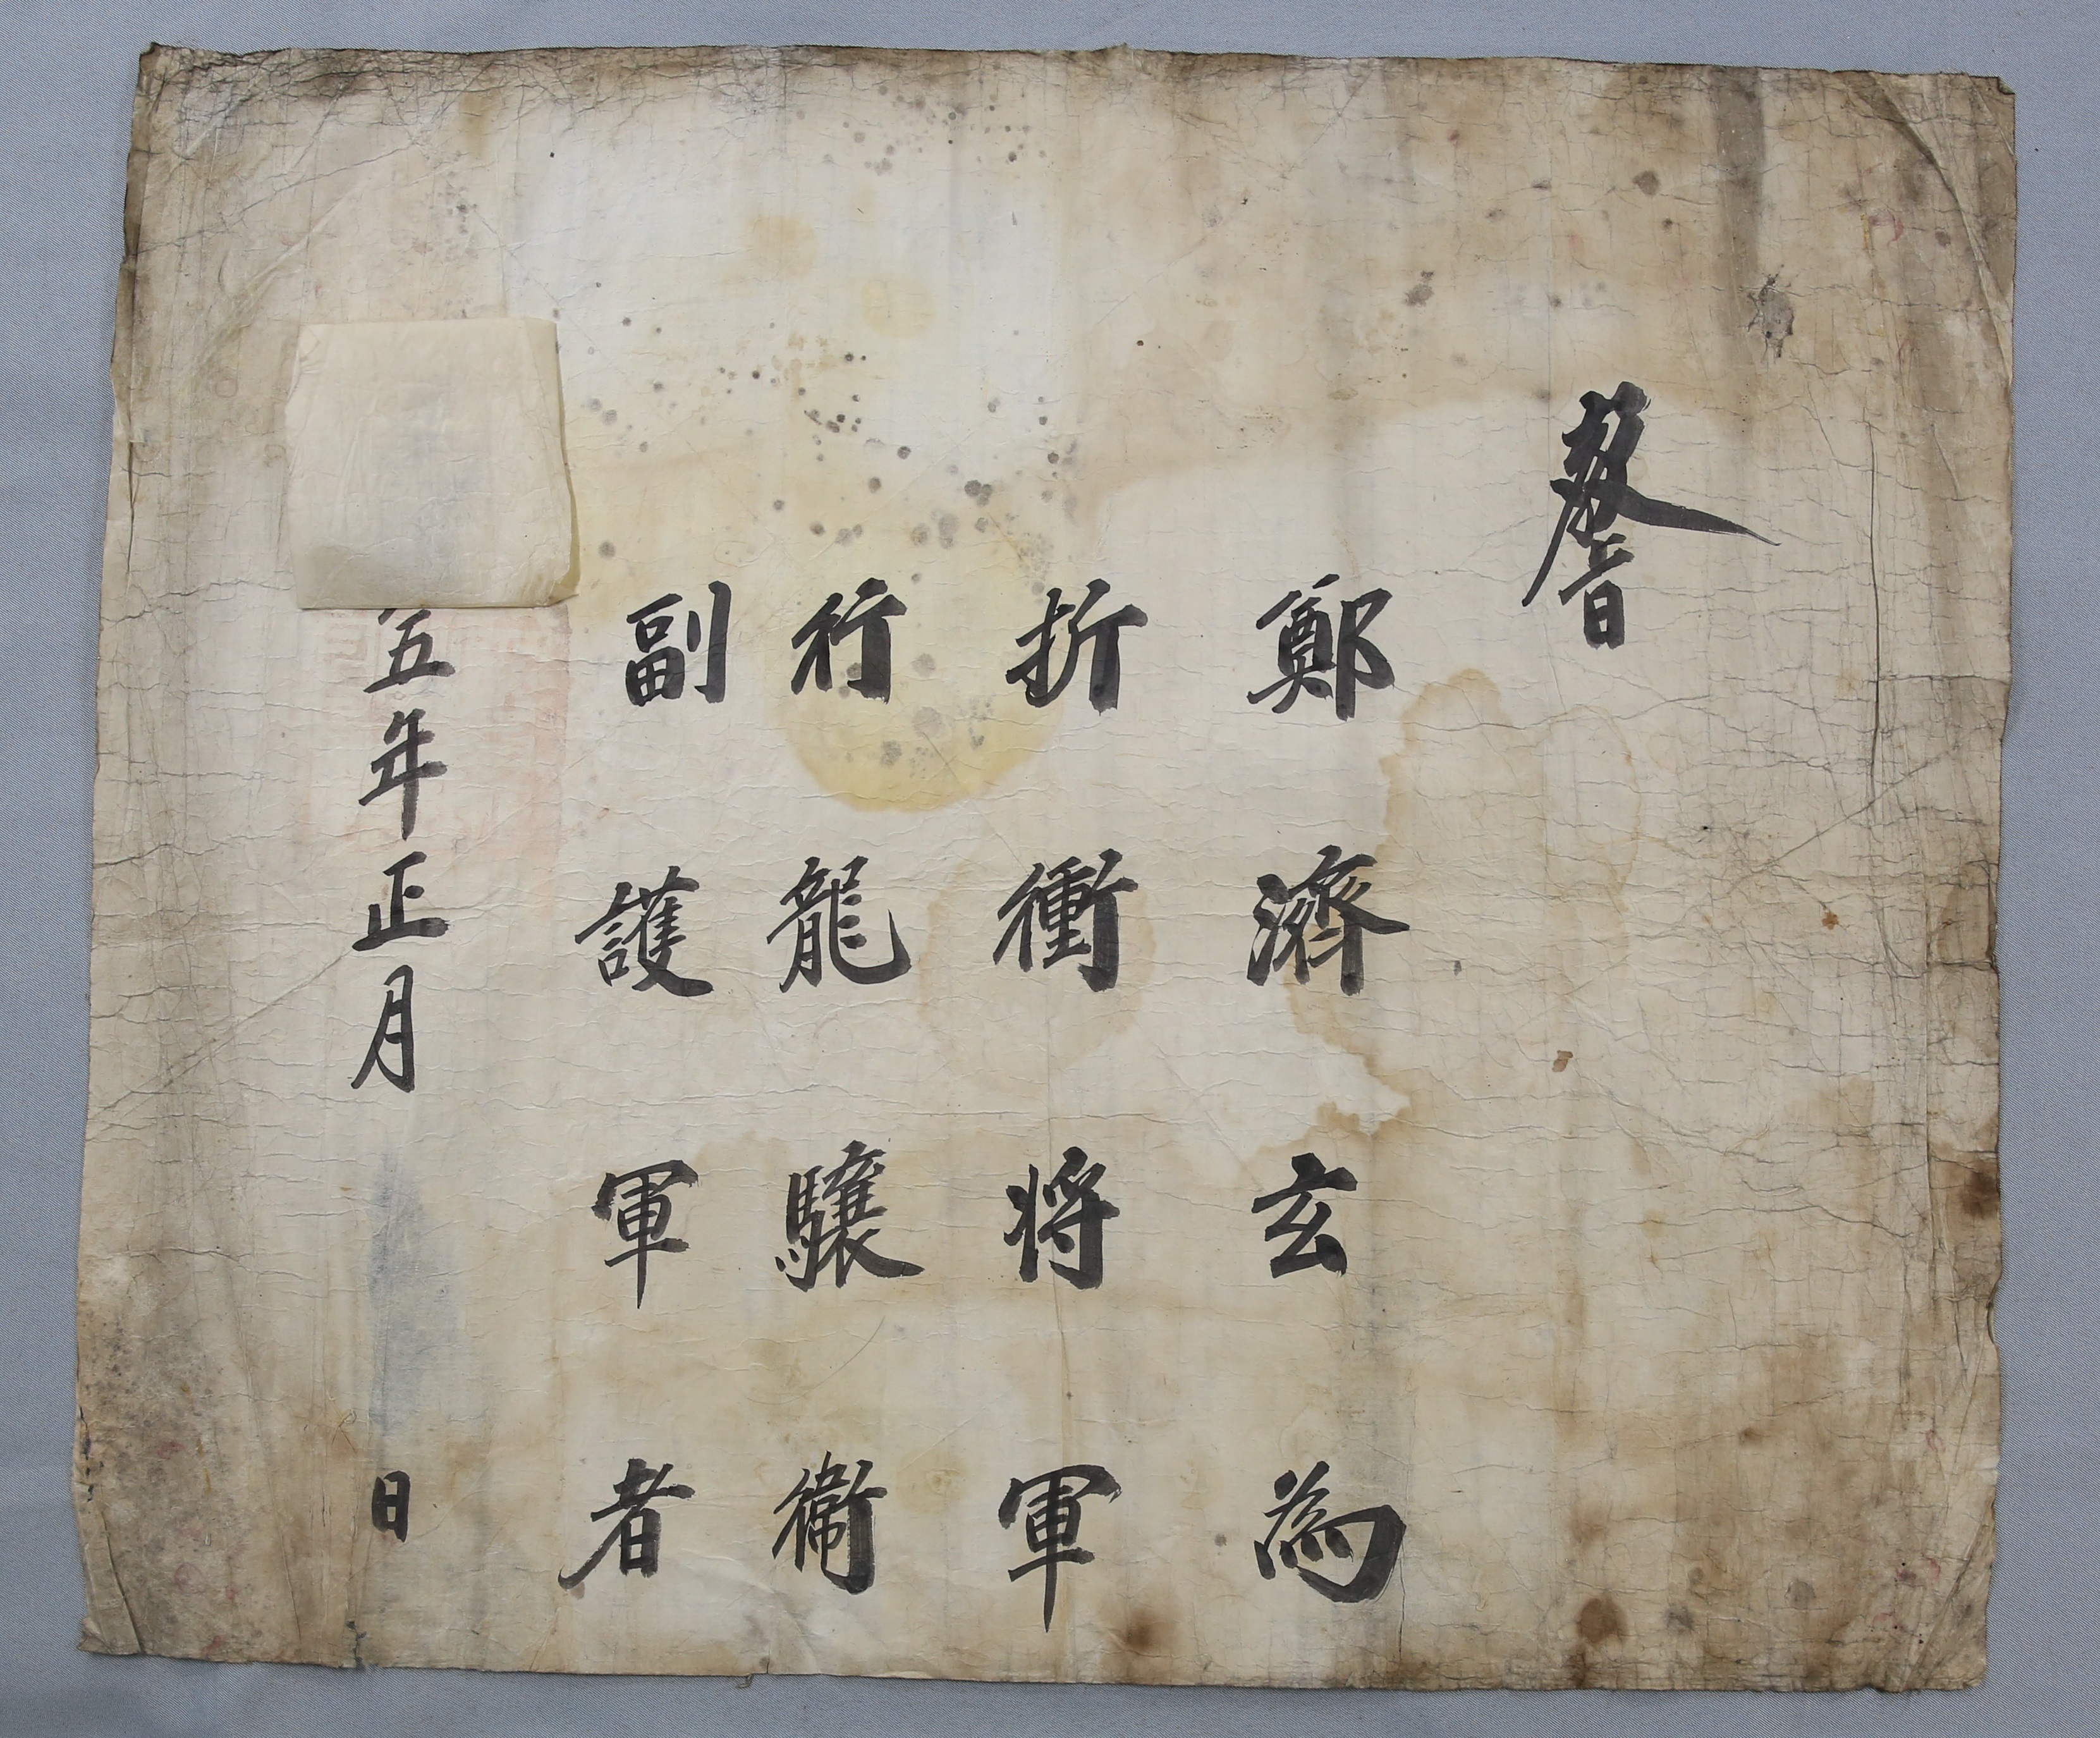 敎旨
鄭濟玄為
折衝将軍
行龍驤衛
副護軍者
五年正月 日